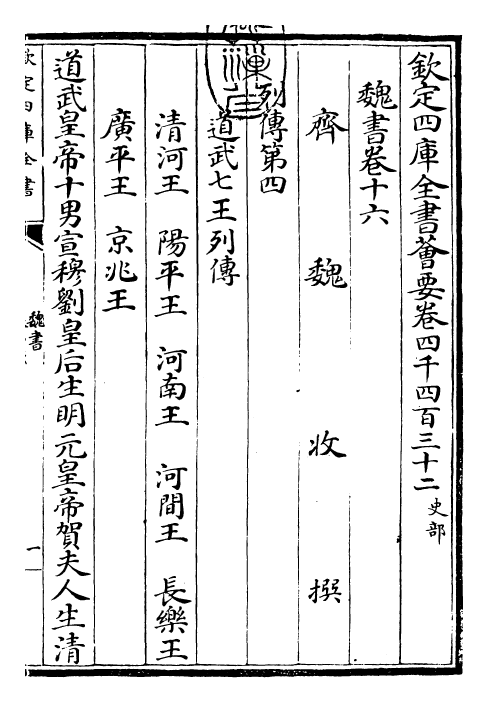 欽定四庫全書薈要卷四千四百三十二 史部
魏書卷十六
齊 魏 收 撰
列傳第四
道武七王列傳
清河王 陽平王 河南王 河間王 長樂王
廣平王 京兆王
道武皇帝十男宣穆劉皇后生明元皇帝賀夫人生清
欽定四庫全書
魏書
一